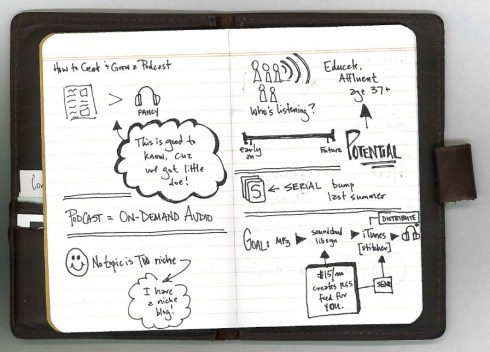 How to Create & Grow a Podcast
>
FANCY
This is good to
know, cuz
we got little
doe!
PODCAST = ON-DEMAND AUDIO
No topic is TOO niche
I have
a niche
blog!
Who's listening?
Educate,
Affluent
age 37+
early
on
Future
POTENTIAL
S
← SERIAL bump
last summer
DISTRIBUTE
GOAL: MP3
soundcloud
libsyn
iTunes
[stitcher]
$15/mo
creates RSS
feed for
YOU.
SEND